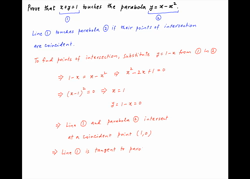 Prove that x+y=1 touches the parabola y=x-x².
① ②
Line ① touches parabola ② if their points of intersection
are coincident.
To find points of intersection, substitute y=1-x from ① in ②
⇒ 1-x = x-x² ⇒ x²-2x+1=0
⇒ (x-1)²=0 ⇒ x=1
y=1-x=0
⇒ Line ① and parabola ② intersect
at a coincident point (1,0)
⇒ Line ① is tangent to para